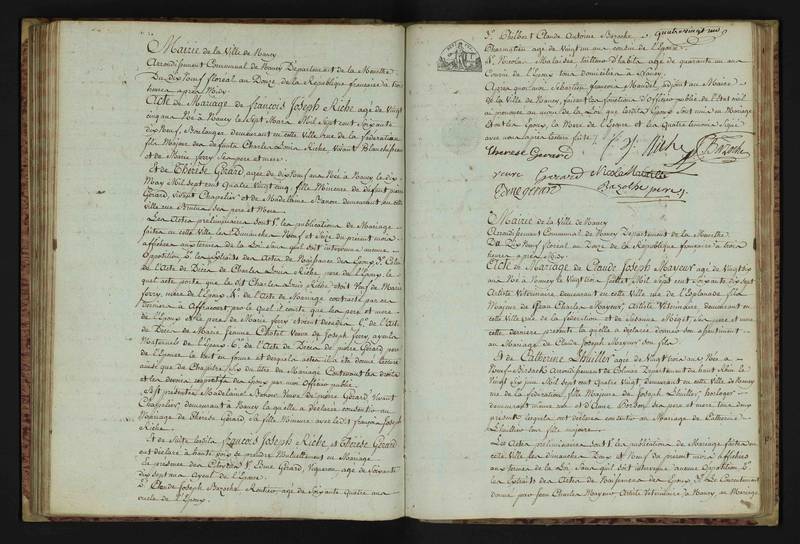 Mairie de la Ville de Nancy
Arrondissement Communal de Nancy Département de la Meurthe
Du dix Neuf floréal an Douze de la République française à trois
heures après Midy
Acte de Mariage de françois Joseph Riche agé de Vingt
cinq ans Né à Nancy le sept Mars Mil Sept cent Soixante
dix Neuf, Boulanger demeurant en cette Ville rue de la fédération
fils Majeur des défunts Charles Louis Riche, Vivant
et de Marie ferry ses pere et mere
Et de Thérèse Gérard agée de dix Neuf ans Née à Nancy le dix
May Mil sept cent Quatre Vingt cinq, fille Mineure de défunt pierre
Gérard, vivant Chapelier et de Madelaine Banon demeurant en cette
Ville rue ses pere et Mere
Les Actes préliminaires sont 1° les publications de Mariage
faites en cette Ville les Dimanches Neuf et Seize du présent mois
affichées aux termes de la Loi sans qu'il soit intervenu aucune
Opposition 2° les Extraits des Actes de Naissance des Epoux 3° Celui
de l'Acte de Décès de Charles Louis Riche, pere de l'Epoux, le
quel acte porte que le dit Charles Louis Riche étoit Veuf de Marie
ferry, mere de l'Epoux 4° de l'Acte de Mariage contracté par ces
derniers à par le quel il conste que les pere et mere
de l'Epoux et le pere de Marie ferry etoient décédés 5° de l'Acte
de Décès de Marie Jeanne Chatel Veuve de Joseph ferry, ayeule
Maternelle de l'Epoux 6° de l'Acte de Décès de pierre Gérard pere
de l'Epouse le tout en forme et desquels actes il a été donné lecture
ainsi que du Chapitre Six du titre du Mariage Contenant les droits
et les devoirs respectifs des Epoux par moi Officier public.
Est présente Madelaine Banon Veuve de pierre Gérard, Vivant
Chapelier, demeurante à Nancy laquelle a déclaré consentir au
Mariage de Thérèse Gérard sa fille Mineure avec le dit françois Joseph
Riche
Et de suite lesdits françois Joseph Riche et Thérèse Gérard
ont déclaré à haute voix se prendre Mutuellement en Mariage
En présence des Citoyens 1° Edme Gérard, Vigneron, agé de Soixante
dix sept ans Ayeul de l'Epouse
2° Claude Joseph Bazoche Rentier, agé de Soixante Quatre ans
oncle de l'Epoux
quatre vingt un
3° Philbert Claude Antoine Bazoche
Pharmacien agé de Vingt un ans cousin de l'Epoux
4° Nicolas Malaisé, tailleur d'habits agé de quarante un ans
Cousin de l'Epoux tous domiciliés à Nancy.
Après quoi moi Sébastien françois Mandel, adjoint au Maire
de la Ville de Nancy, faisant les fonctions d'Officier public de l'état civil
ai prononcé au nom de la Loi que lesdits Epoux sont unis en Mariage
Et ont les Epoux, la Mere de l'Epouse et les Quatre témoins Signé
avec moi après lecture faite
Therese Gerard
f. J. Riche
Bazoche
veuve Gerard
Nicolas Malaisé
Edme gérard
Bazoche
Mairie de la Ville de Nancy
Arrondissement Communal de Nancy Département de la Meurthe
Du Dix Neuf floréal an Douze de la République française à trois
heures après Midy
Acte de Mariage de Claude Joseph Mayeur agé de Vingt six
ans Né à Nancy le Vingt six Juillet Mil Sept cent Soixante dix sept
Artiste Vétérinaire demeurant en cette Ville rue de l'Esplanade fils
Majeur de Jean Charles Mayeur, Artiste Vétérinaire demeurant en
cette Ville rue de la fédération et de Susanne ses pere et mere
cette derniere présente laquelle a déclaré donner son assentiment
au Mariage de Claude Joseph Mayeur son fils
Et de Catherine Lhuillier agée de Vingt trois ans Née à
Neuf-Brisack Arrondissement de Colmar Département du haut Rhin le
Vingt Six juin Mil Sept cent Quatre Vingt, demeurant en cette Ville de Nancy
rue de la fédération, fille Majeure de Joseph Lhuillier, horloger
demeurant même rue et d'Anne Bordon ses pere et mere tous deux
présents lesquels ont déclaré consentir au Mariage de Catherine
Lhuillier leur fille majeure
Les Actes préliminaires sont 1° les publications de Mariage faites en
cette Ville les dimanches Deux et Neuf du présent mois affichées
aux termes de la Loi, sans qu'il soit intervenu aucune Opposition 2°
les Extraits des Actes de Naissance des Epoux 3° Le Consentement
donné par Jean Charles Mayeur Artiste Vétérinaire à Nancy, au Mariage